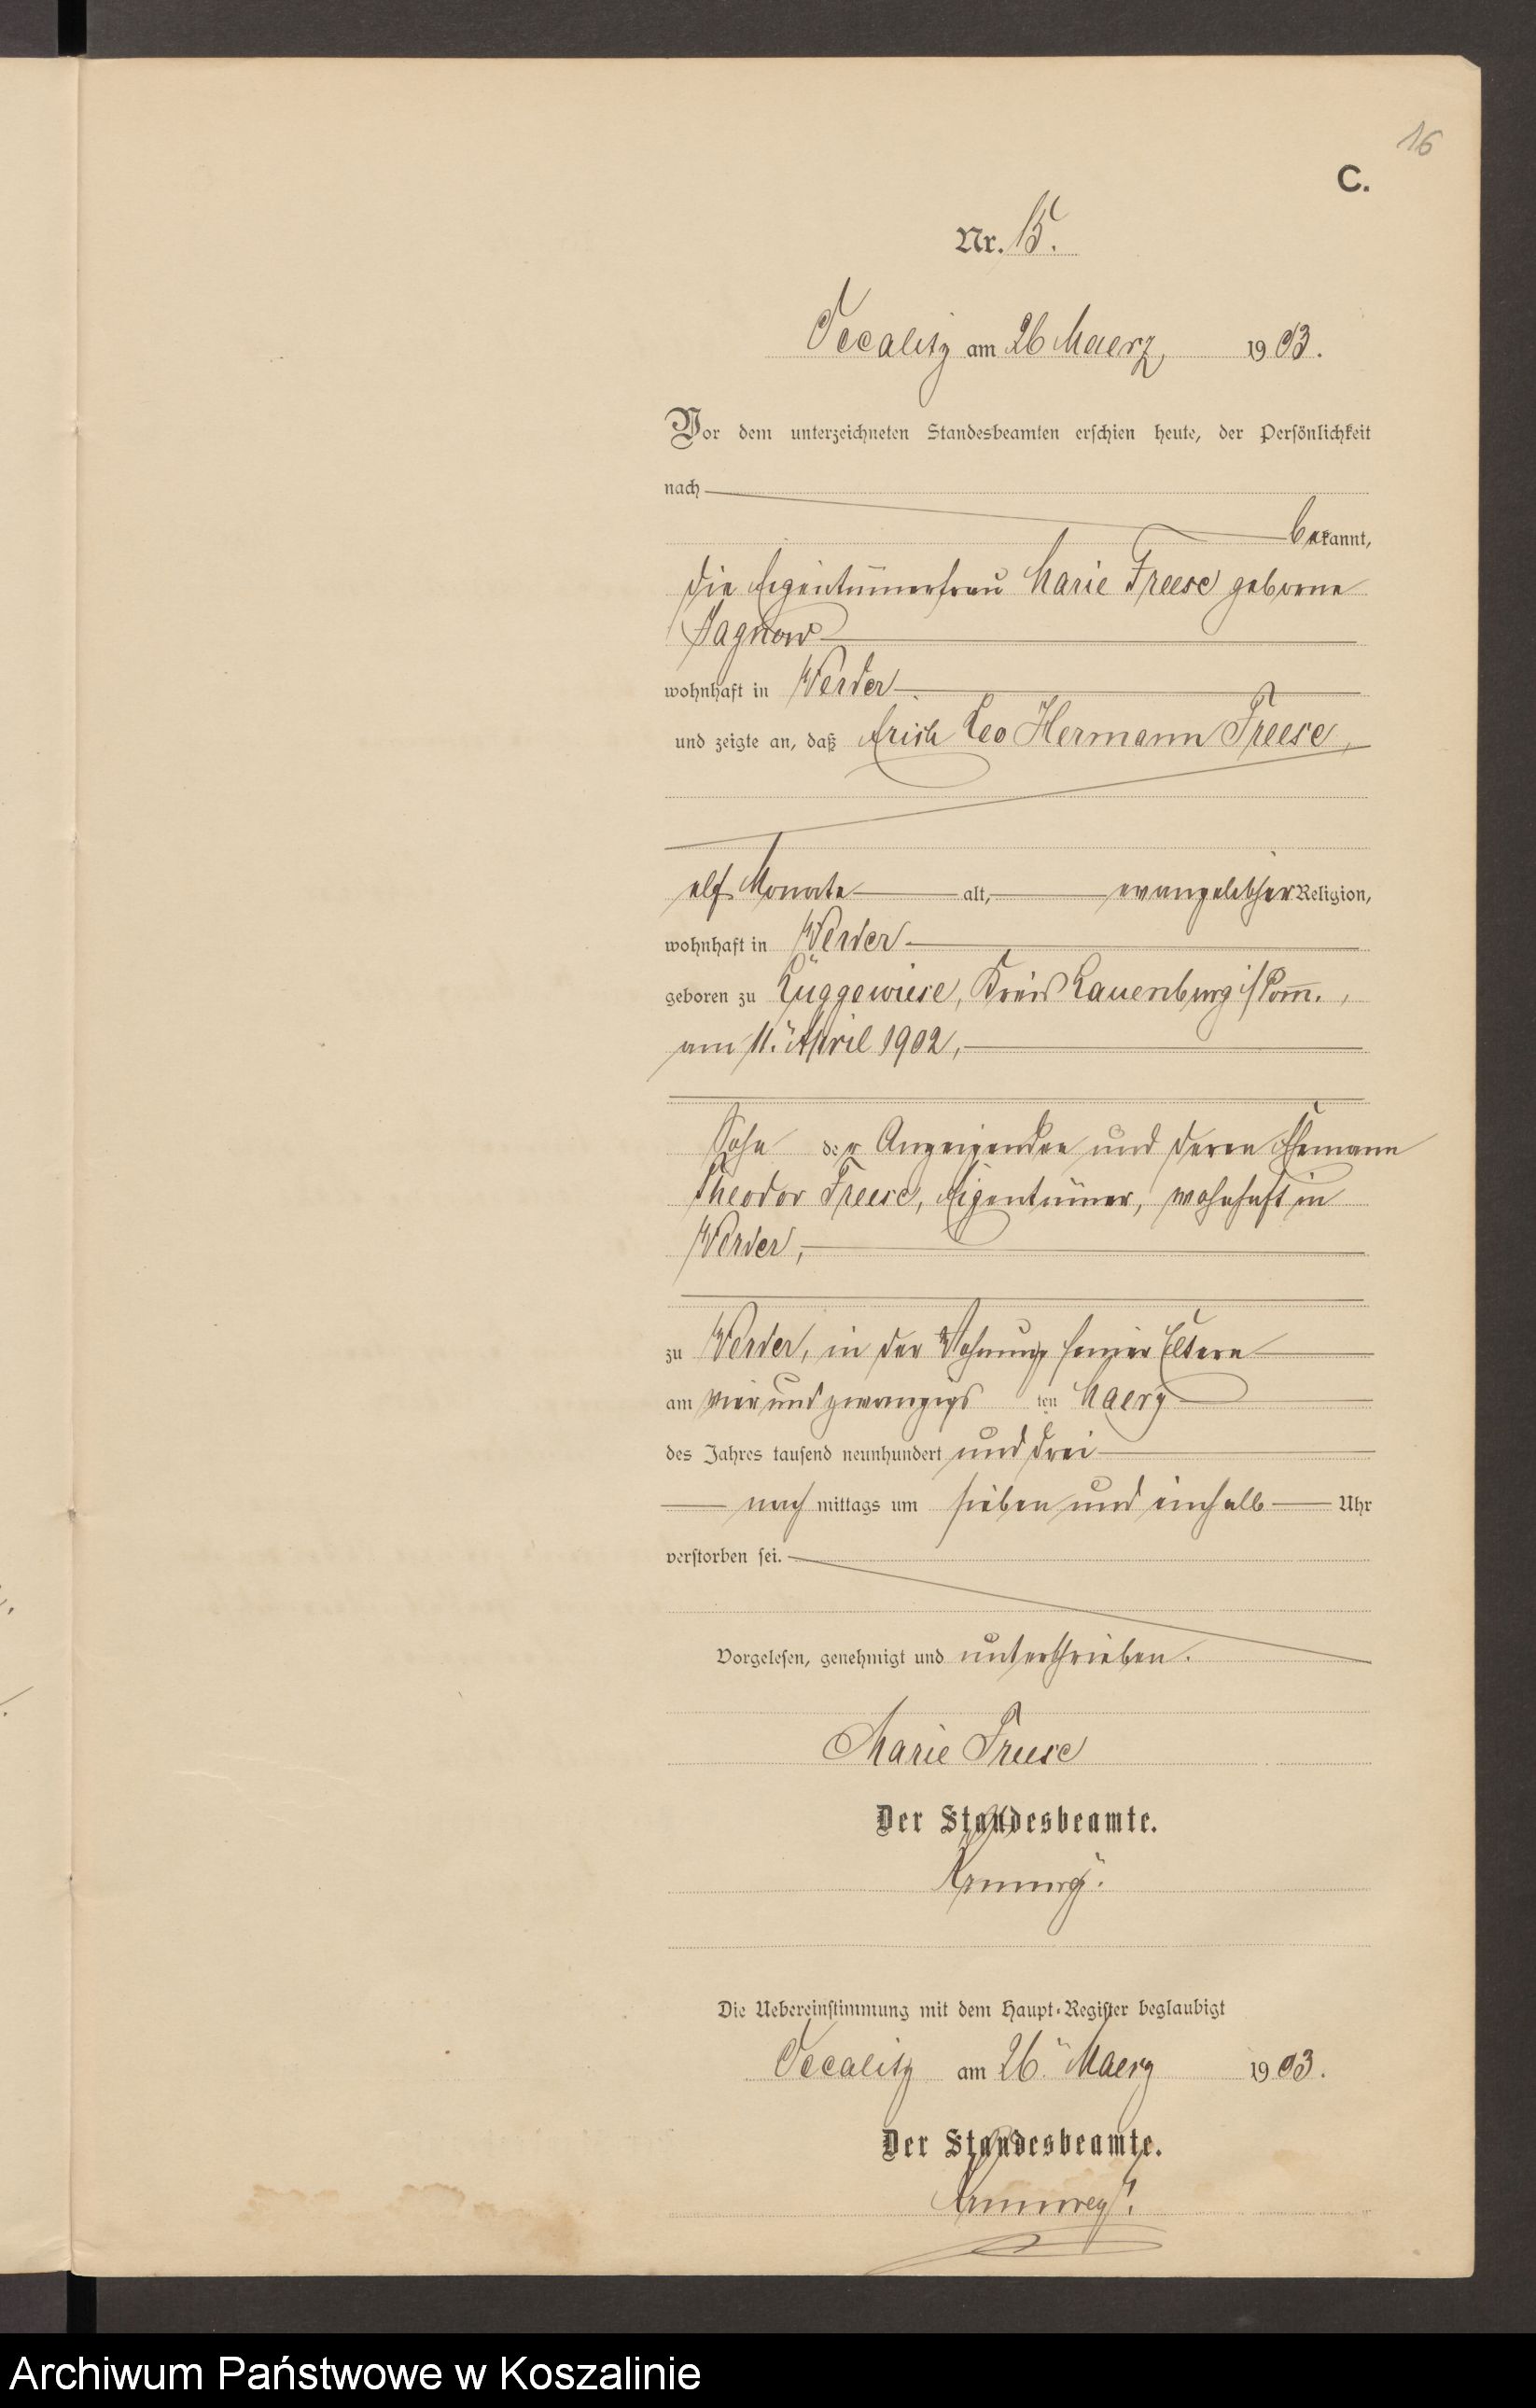 16
C.
Nr. 15.
Vecalitz am 26 Maerz 1903.
Vor dem unterzeichneten Standesbeamten erschien heute, der Persönlichkeit
nach
bekannt,
die Eigentümerfrau Marie Freese geborne
Pagnow
wohnhaft in Werder
und zeigte an, daß Erich Leo Hermann Freese,
elf Monate alt, evangelischer Religion,
wohnhaft in Werder
geboren zu Lüggewiese, Kreis Lauenburg i/Pom.,
am 11. April 1902,
Sohn der Anzeigenden und deren Ehemann
Theodor Freese, Eigentümer, wohnhaft in
Werder,
zu Werder, in der Wohnung seiner Eltern
am vier und zwanzigsten Maerz
des Jahres tausend neunhundert und drei
nachmittags um sieben und einhalb Uhr
verstorben sei.
Vorgelesen, genehmigt und unterschrieben.
Marie Freese
Der Standesbeamte.
Die Uebereinstimmung mit dem Haupt-Register beglaubigt
Vecalitz am 26. Maerz 1903.
Der Standesbeamte.
Archiwum Państwowe w Koszalinie